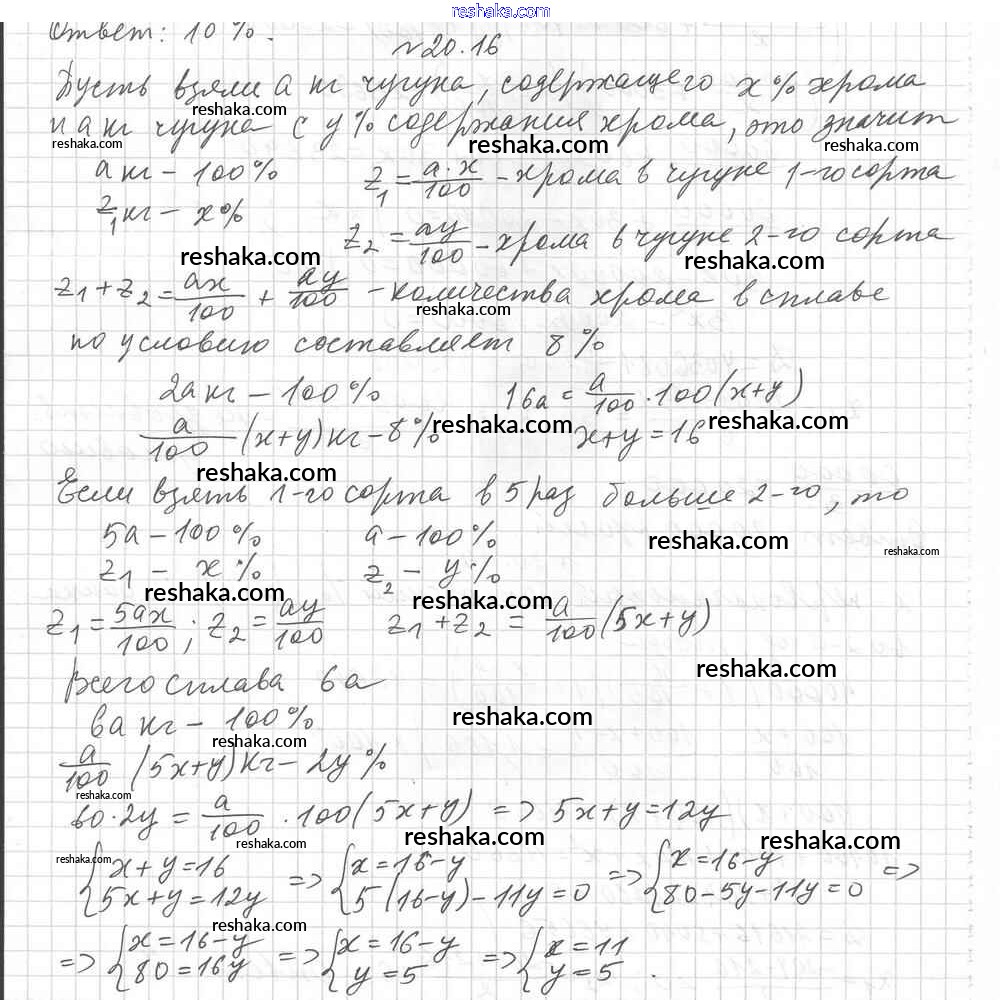 reshaka.com
Ответ: 10%.
№20.16
Пусть взяли а кг чугуна, содержащего x% хрома
reshaka.com reshaka.com
и а кг чугуна с y% содержания хрома, это значит
reshaka.com reshaka.com reshaka.com
а кг – 100% z₁ = a·x/100 – хрома в чугуне 1-го сорта
z₁ кг – x%
z₂ = ay/100 – хрома в чугуне 2-го сорта
reshaka.com reshaka.com
z₁ + z₂ = ax/100 + ay/100 – количества хрома в сплаве
reshaka.com
по условию составляет 8%
2а кг – 100% 16a = a/100 · 100(x+y)
a/100 (x+y) кг – 8% x+y = 16
reshaka.com reshaka.com
reshaka.com
Если взять 1-го сорта в 5 раз больше 2-го, то
5a – 100% a – 100%
reshaka.com reshaka.com
z₁ – x% z₂ – y%
reshaka.com reshaka.com
z₁ = 5ax/100; z₂ = ay/100 z₁ + z₂ = a/100 (5x+y)
reshaka.com
Всего сплава 6a
reshaka.com
6a кг – 100%
reshaka.com
a/100 (5x+y) кг – 2y%
reshaka.com
60·2y = a/100 · 100(5x+y) => 5x+y = 12y
reshaka.com reshaka.com reshaka.com
{x+y=16 => {x=16-y => {x=16-y =>
{5x+y=12y {5(16-y)-11y=0 {80-5y-11y=0
reshaka.com
=> {x=16-y => {x=16-y => {x=11
{80=16y {y=5 {y=5.
reshaka.com